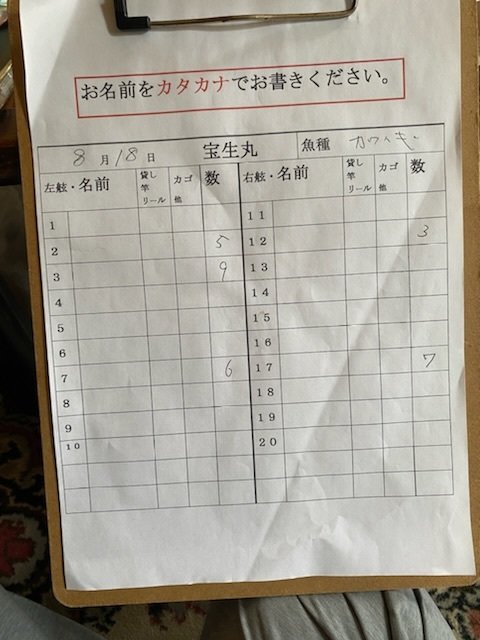 お名前をカタカナでお書きください。
8月18日 宝生丸 魚種 カワハギ
左舷・名前 貸し竿リール カゴ他 数 右舷・名前 貸し竿リール カゴ他 数
1 11
2 5 12 3
3 9 13
4 14
5 15
6 16
7 6 17 7
8 18
9 19
10 20